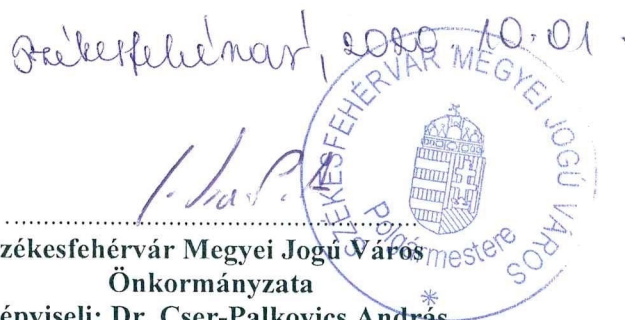 Székesfehérvár, 2020 10.01.
SZÉKESFEHÉRVÁR MEGYEI JOGÚ VÁROS
Polgármestere
*
zékesfehérvár Megyei Jogú Város
Önkormányzata
épviseli: Dr. Cser-Palkovics András